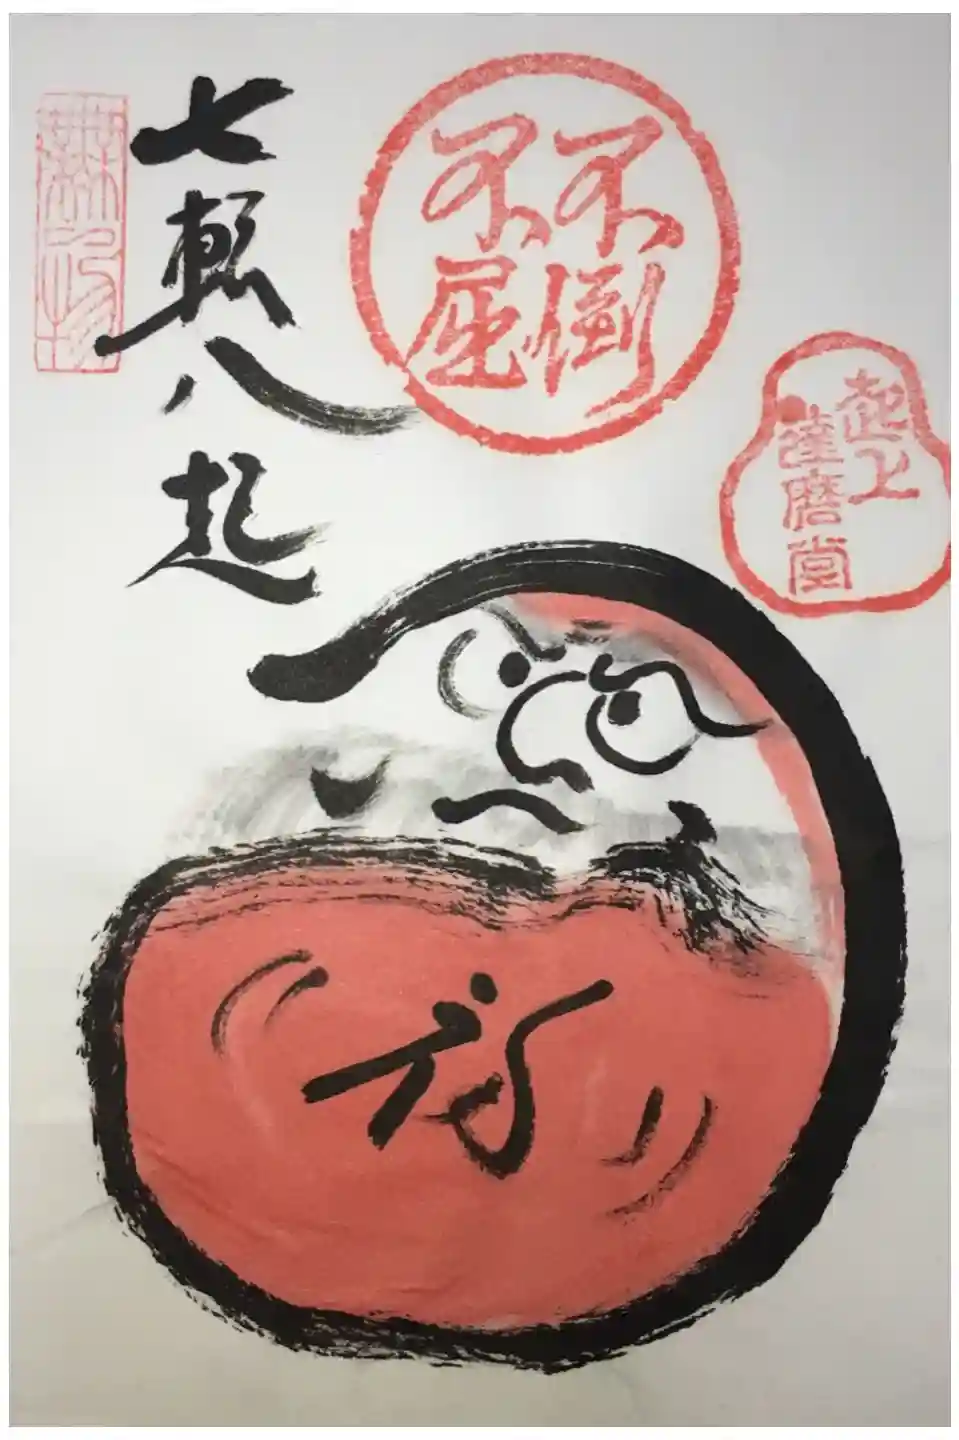 不倒
不屈
起上
達磨堂
七転八起